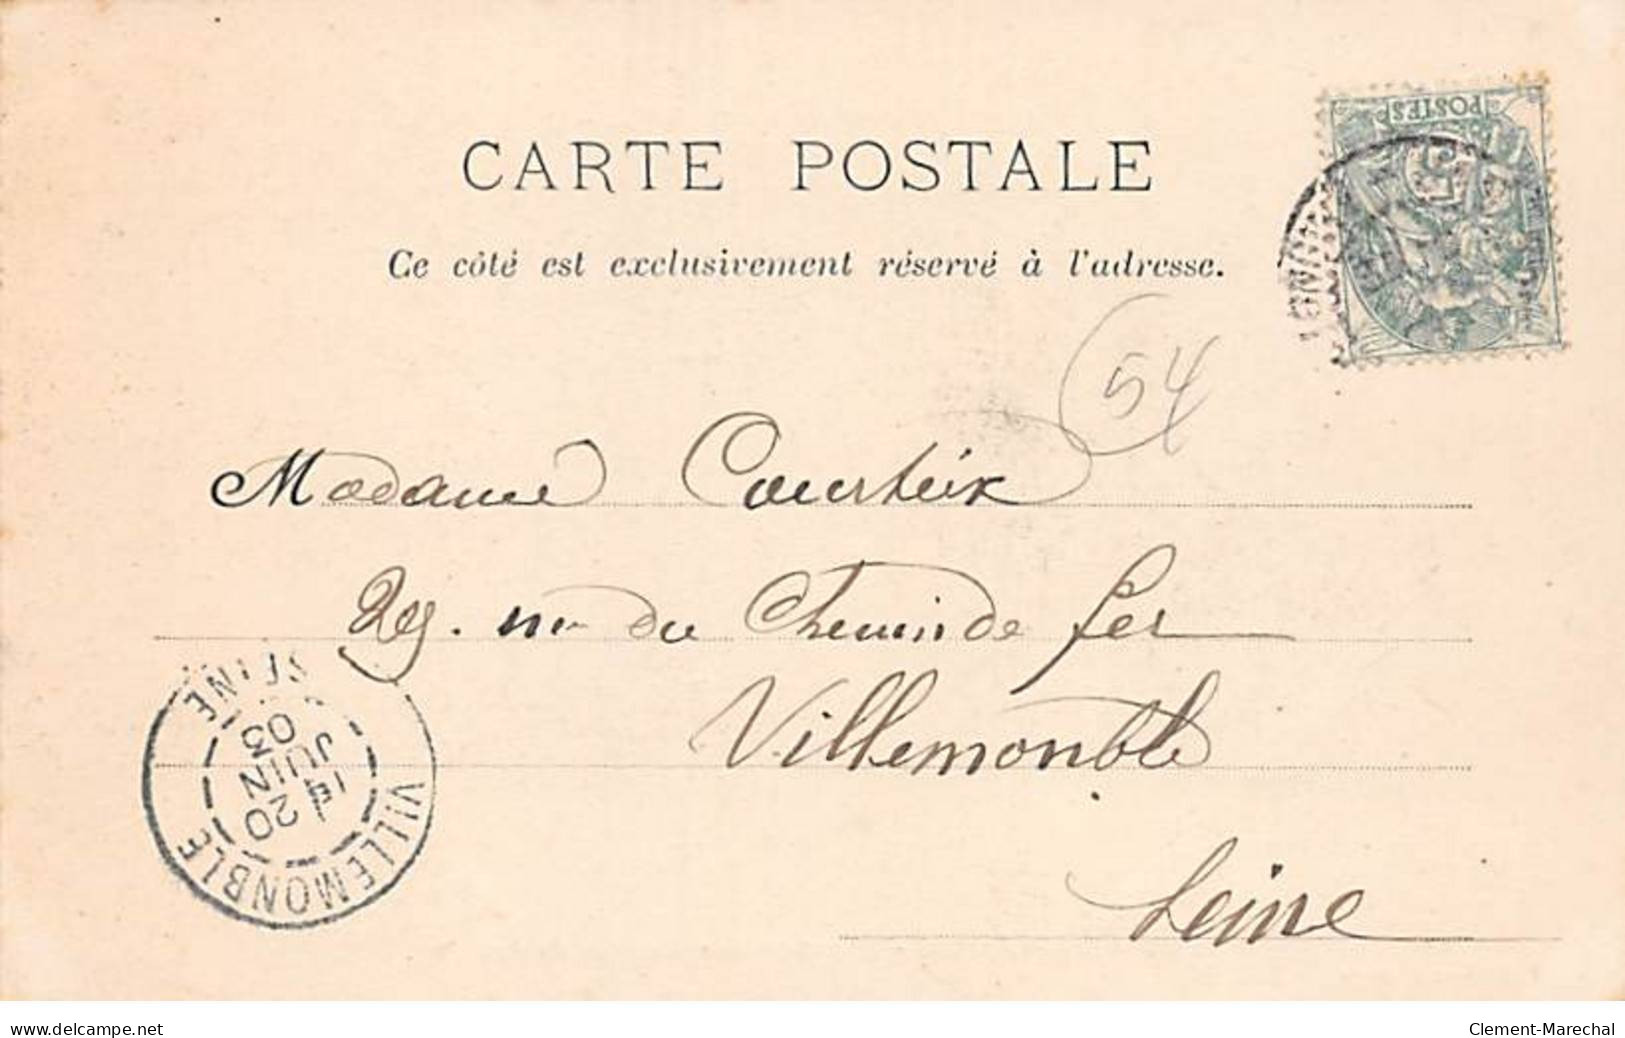 CARTE POSTALE
Ce côté est exclusivement réservé à l'adresse.
POSTES
54
Madame Courteix
29. rue du Chemin de fer
Villemomble
Seine
VILLEMONBLE SEINE
20
JUIN
03
www.delcampe.net
Clement-Marechal